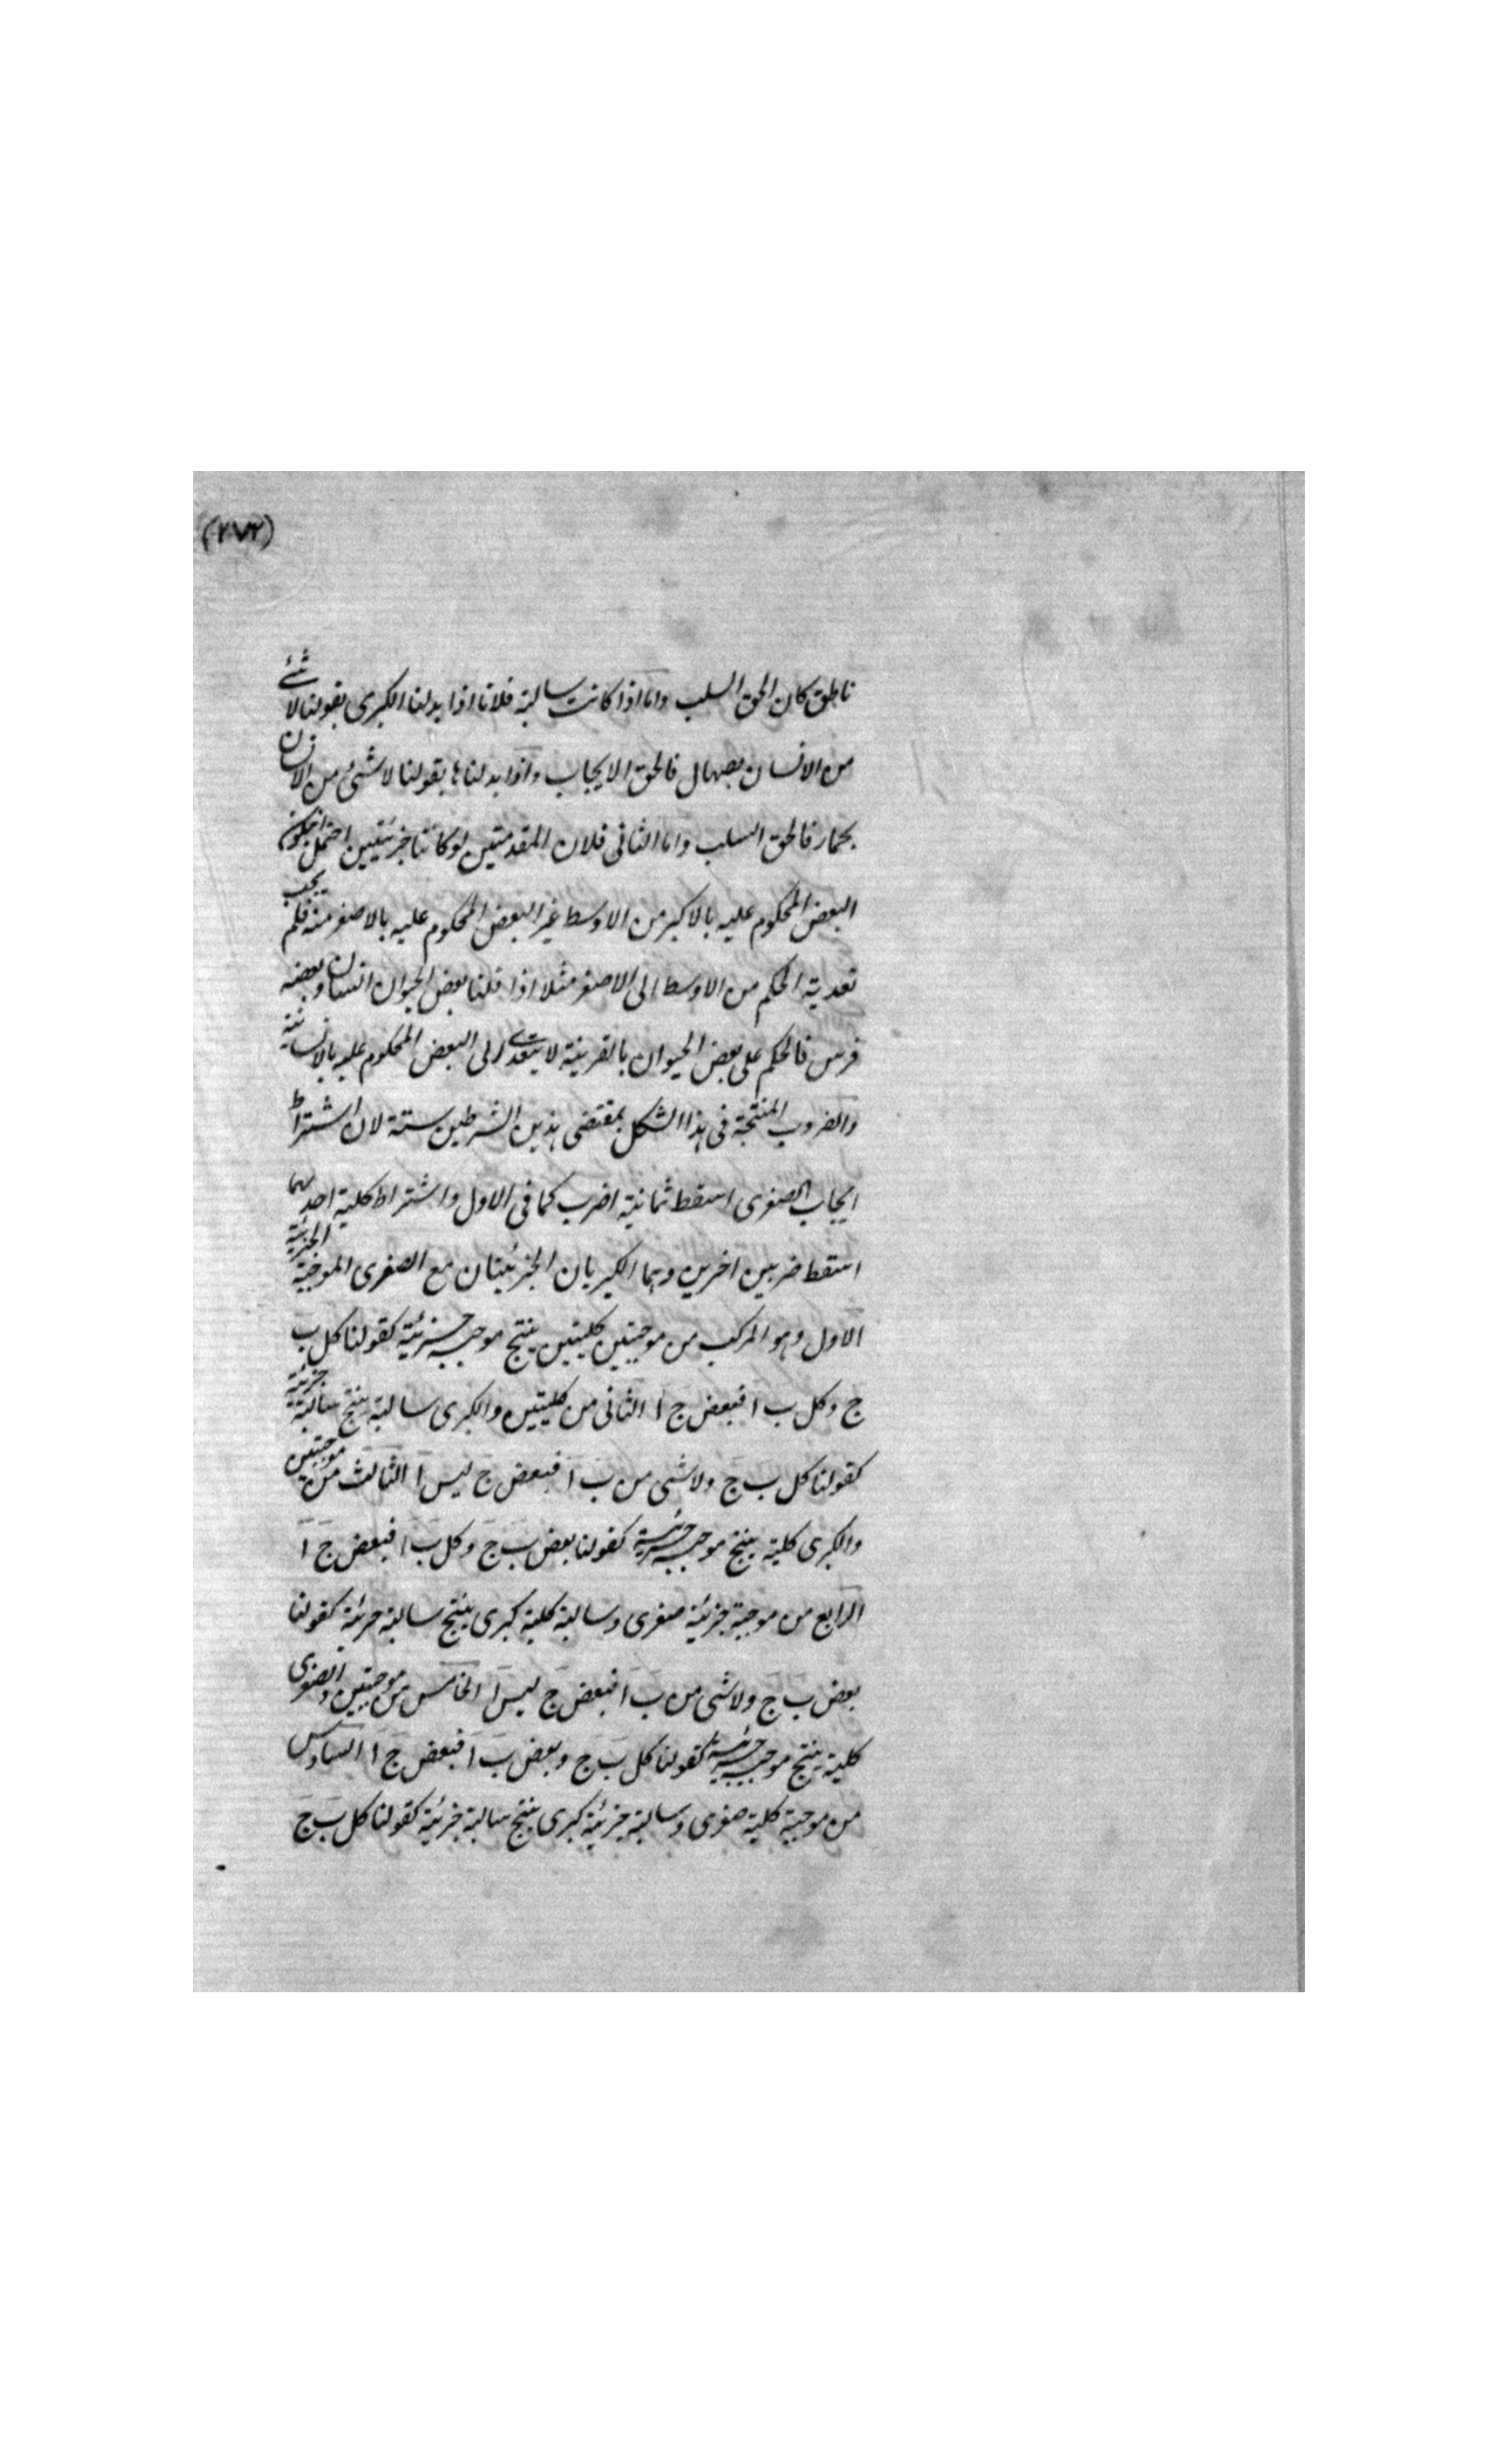 (٢٧٢)
ناطق كان الحق السلب واما اذا كانت سالبة فلانا اذا بدلنا الكبرى بقولنا لا شئ
من الانسان بصهال فالحق الايجاب واذا بدلناها بقولنا لا شئ من الانسان
بحمار فالحق السلب واما الثانى فلان المقدمتين لو كانتا جزئيتين احتمل ان يكون
البعض المحكوم عليه بالاكبر من الاوسط غير البعض المحكوم عليه بالاصغر منه فلم يجب
تعدية الحكم من الاوسط الى الاصغر مثلا اذا قلنا بعض الحيوان انسان وبعضه
فرس فالحكم على بعض الحيوان بالفرسية لا يتعدى الى البعض المحكوم عليه بالانسانية
والضروب المنتجة فى هذا الشكل بمقتضى هذين الشرطين ستة لان اشتراط
ايجاب الصغرى اسقط ثمانية اضرب كما فى الاول واشتراط كلية احديهما
اسقط ضربين اخرين وهما الكبريان الجزئيتان مع الصغرى الموجبة الجزئية
الاول وهو المركب من موجبتين كليتين ينتج موجبة جزئية كقولنا كل ب
ج وكل ب ا فبعض ج ا الثانى من كليتين والكبرى سالبة ينتج سالبة جزئية
كقولنا كل ب ج ولا شى من ب ا فبعض ج ليس ا الثالث من موجبتين
والكبرى كلية ينتج موجبة جزئية كقولنا بعض ب ج وكل ب ا فبعض ج ا
الرابع من موجبة جزئية صغرى وسالبة كلية كبرى ينتج سالبة جزئية كقولنا
بعض ب ج ولا شى من ب ا فبعض ج ليس ا الخامس من موجبتين والصغرى
كلية ينتج موجبة جزئية كقولنا كل ب ج وبعض ب ا فبعض ج ا السادس
من موجبة كلية صغرى وسالبة جزئية كبرى ينتج سالبة جزئية كقولنا كل ب ج